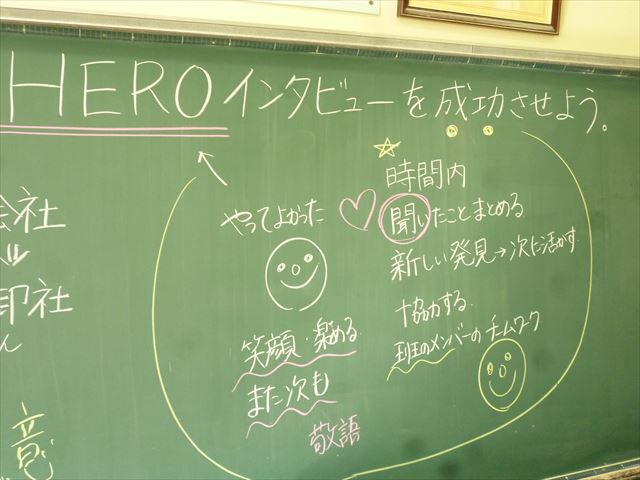 HEROインタビューを成功させよう。
会社
印社
ん
意
やってよかった
笑顔・楽める
また次も
敬語
時間内
聞いたことまとめる
新しい発見→次に活かす
協力する
班のメンバーのチームワーク